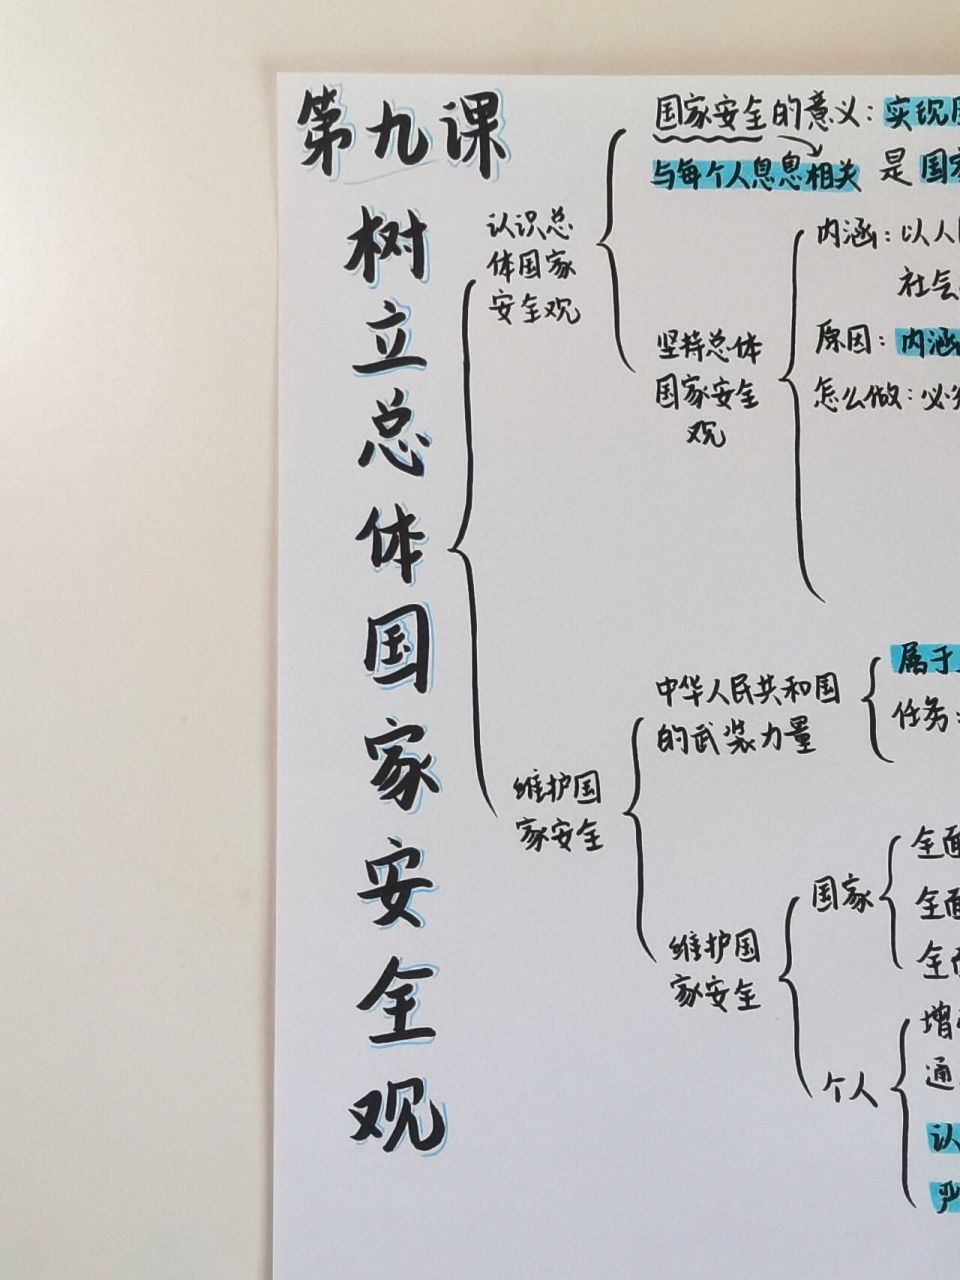 第九课
树立总体国家安全观
认识总
体国家
安全观
国家安全的意义：实现
与每个人息息相关 是国家
坚持总体
国家安全
观
内涵：以人
社会
原因：内涵
怎么做：必须
维护国
家安全
中华人民共和国
的武装力量
属于
任务：
维护国
家安全
国家
全面
全面
全面
个人
增
通
认
严